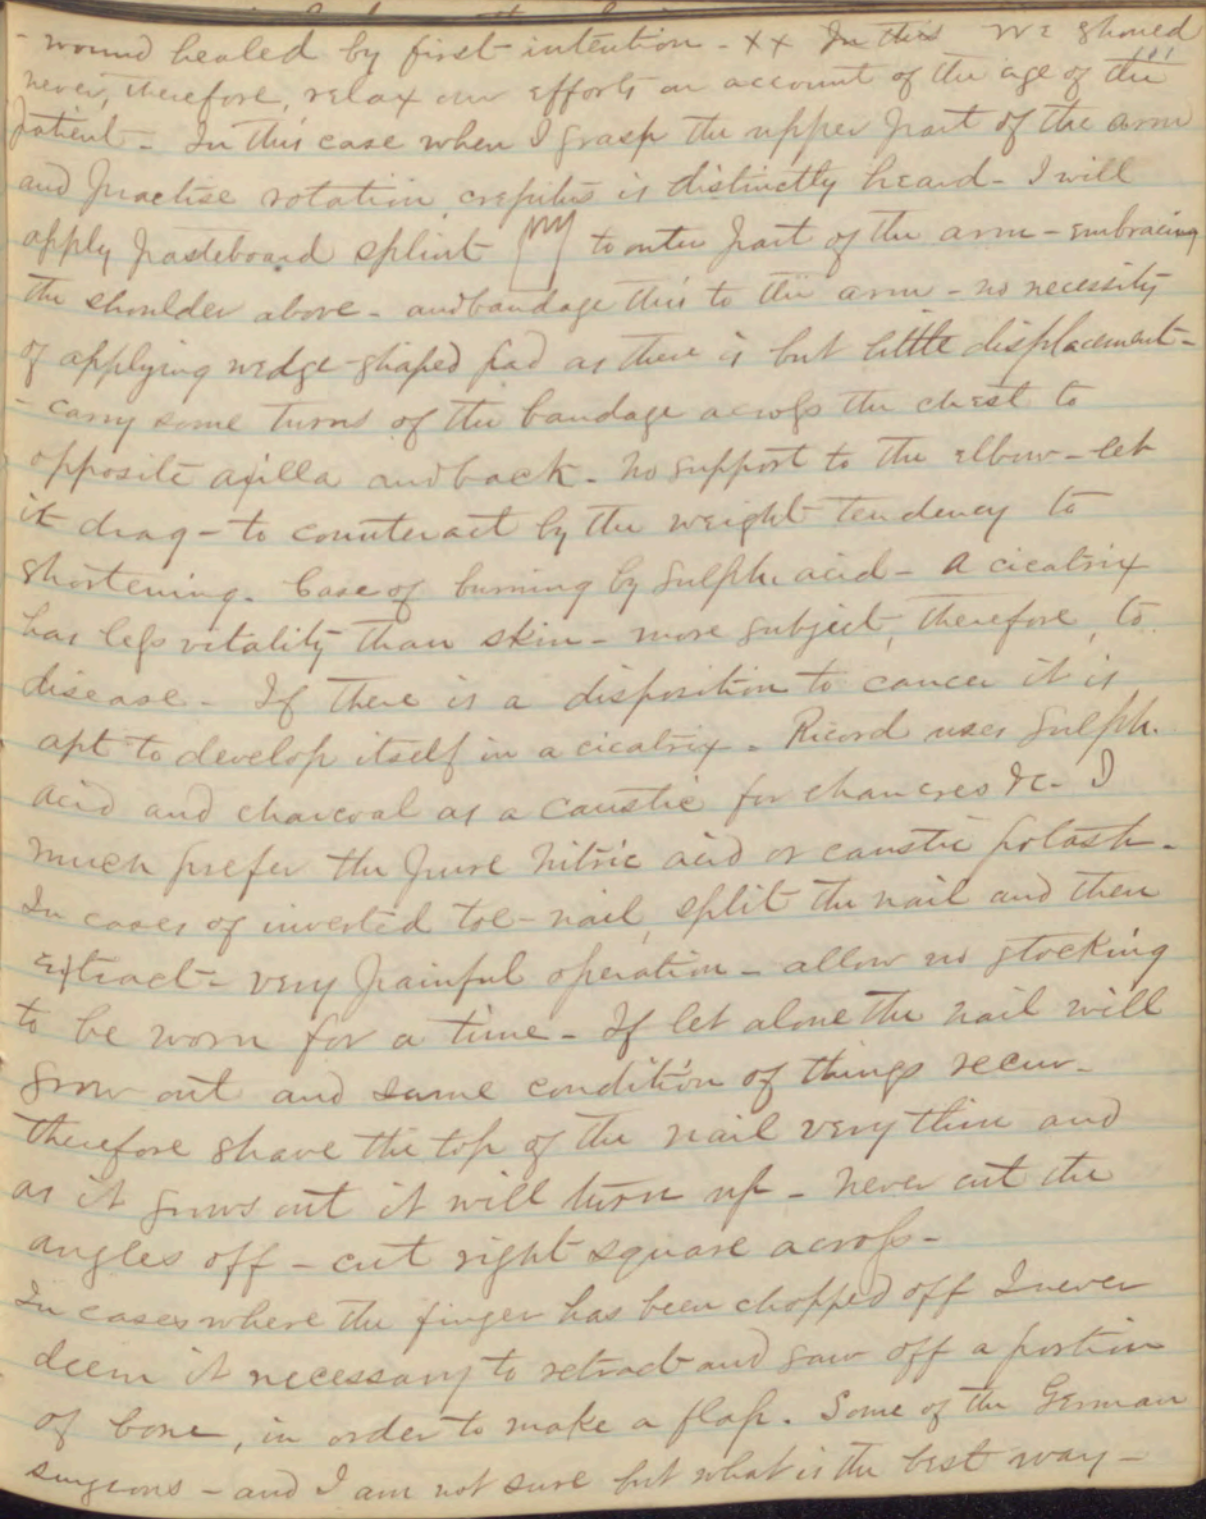 - wound healed by first intention - x x In this We should
never, therefore, relax our efforts on account of the age of the
patient - In this case when I grasp the upper part of the arm
and practise rotation, crepitus is distinctly heard - I will
apply pasteboard splint to outer part of the arm - embracing
the shoulder above - and bandage this to the arm - no necessity
of applying wedge-shaped pad as there is but little displacement -
- carry some turns of the bandage across the chest to
opposite axilla and back - No support to the elbow - let
it drag - to counteract by the weight tendency to
shortening. Case of burning by Sulph. acid - A cicatrix
has less vitality than skin - more subject, therefore, to
disease - If there is a disposition to cancer it is
apt to develop itself in a cicatrix. Ricord uses Sulph.
acid and charcoal as a caustic for chancres &c - I
much prefer the pure Nitric acid or caustic potash -
In cases of inverted toe-nail, split the nail and then
extract - very painful operation - allow no stocking
to be worn for a time - If let alone the nail will
grow out and same condition of things recur -
therefore shave the top of the nail very thin and
as it grows out it will turn up - Never cut the
angles off - cut right square across -
In cases where the finger has been chopped off I never
deem it necessary to retract and saw off a portion
of bone, in order to make a flap. Some of the German
surgeons - and I am not sure but what is the best way -